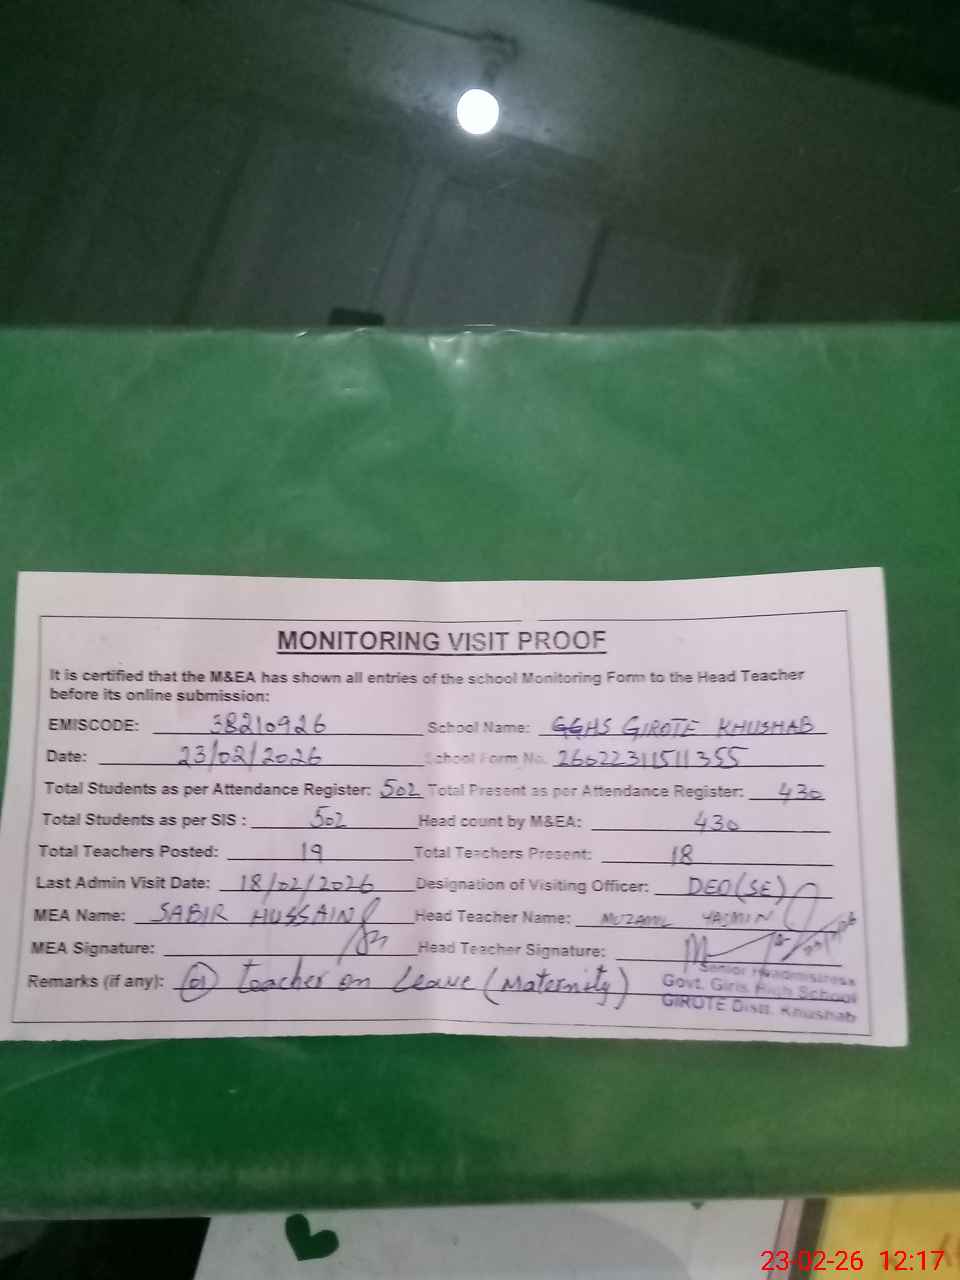 MONITORING VISIT PROOF
It is certified that the M&EA has shown all entries of the school Monitoring Form to the Head Teacher
before its online submission:
EMISCODE: 38210926 School Name: GGHS GIROTE KHUSHAB
Date: 23/02/2026 School Form No. 26022311511355
Total Students as per Attendance Register: 502 Total Present as per Attendance Register: 430
Total Students as per SIS : 502 Head count by M&EA: 430
Total Teachers Posted: 19 Total Teachers Present: 18
Last Admin Visit Date: 18/02/2026 Designation of Visiting Officer: DEO(SE)
MEA Name: SABIR HUSSAIN Head Teacher Name: MUZAMIL YASMIN
MEA Signature: Head Teacher Signature:
Remarks (if any): 01 teacher on Leave (Maternity)
Senior Headmistress
Govt. Girls High School
GIROTE Distt. Khushab
23-02-26 12:17